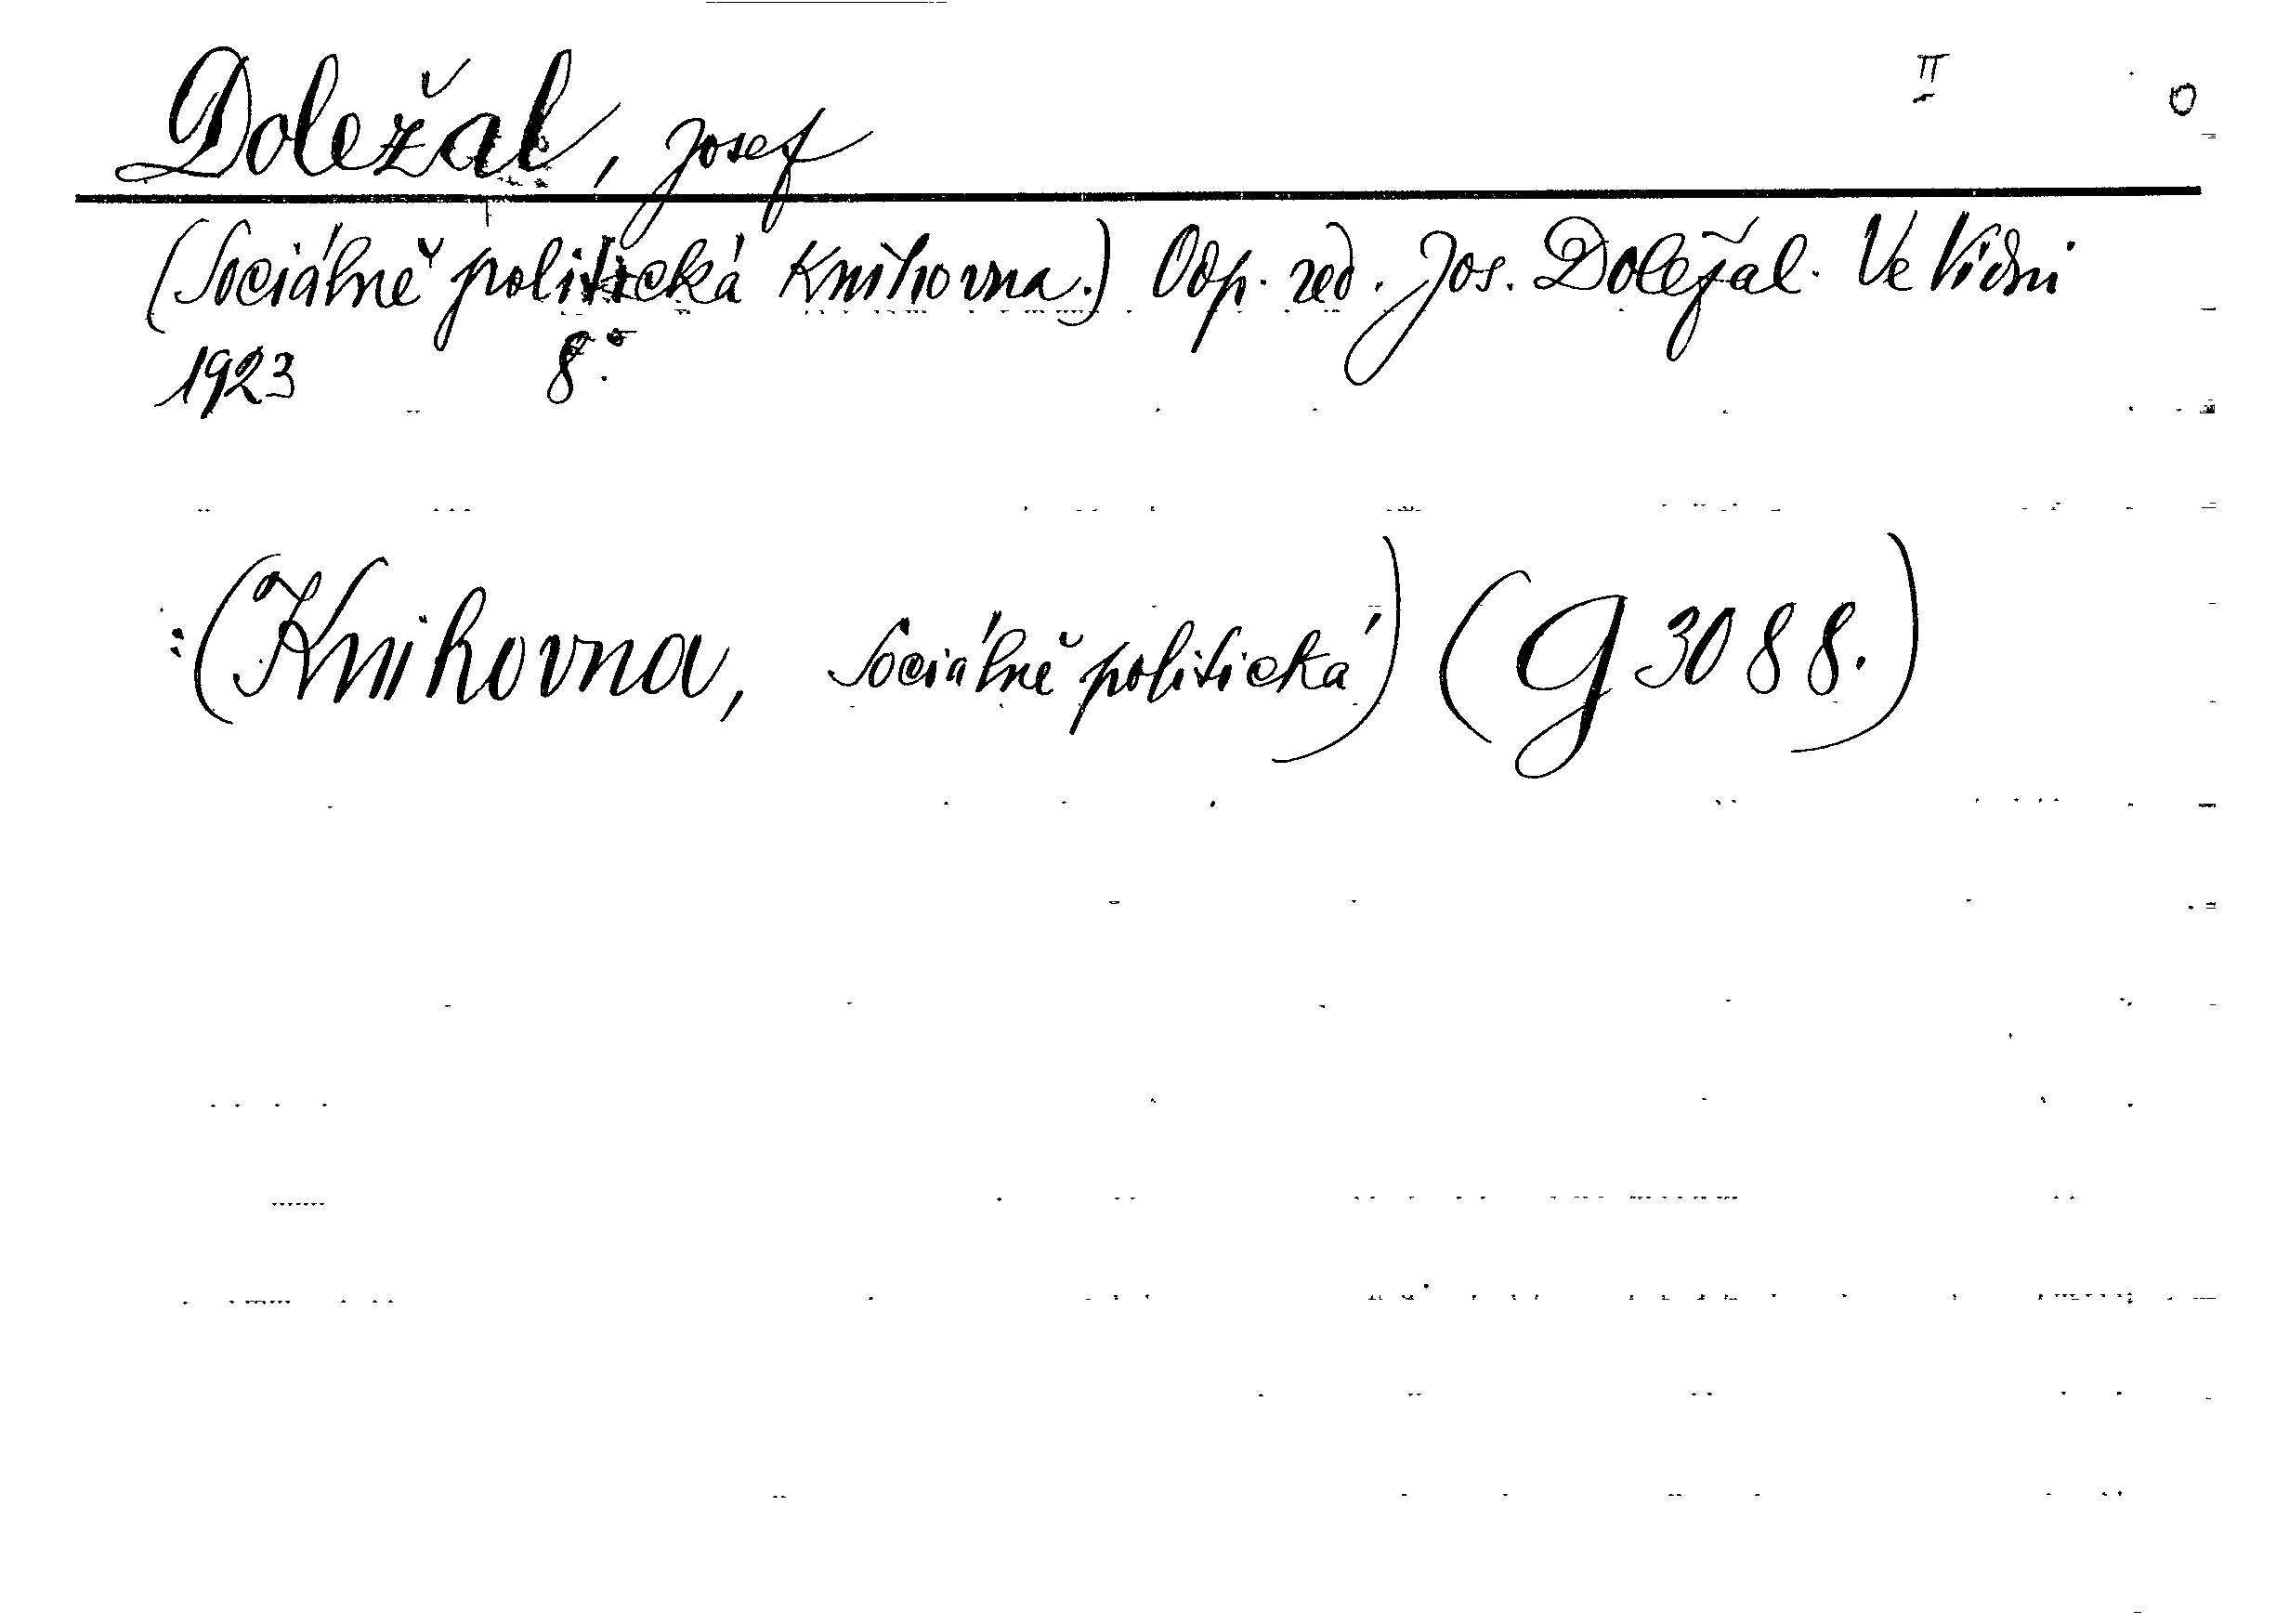 Doležal, Josef II 0
(Sociálně politická Knihovna.) Odp. red. Jos. Doležal. Ve Vídni
1923 8°.
: (Knihovna, sociálně politická) (G 3088.)